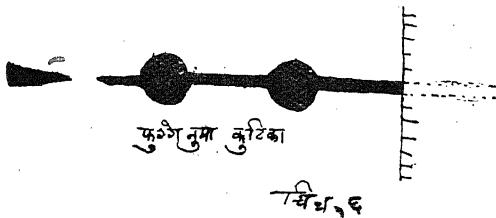 फुग्गे नुमा कुटिका
चित्र ६